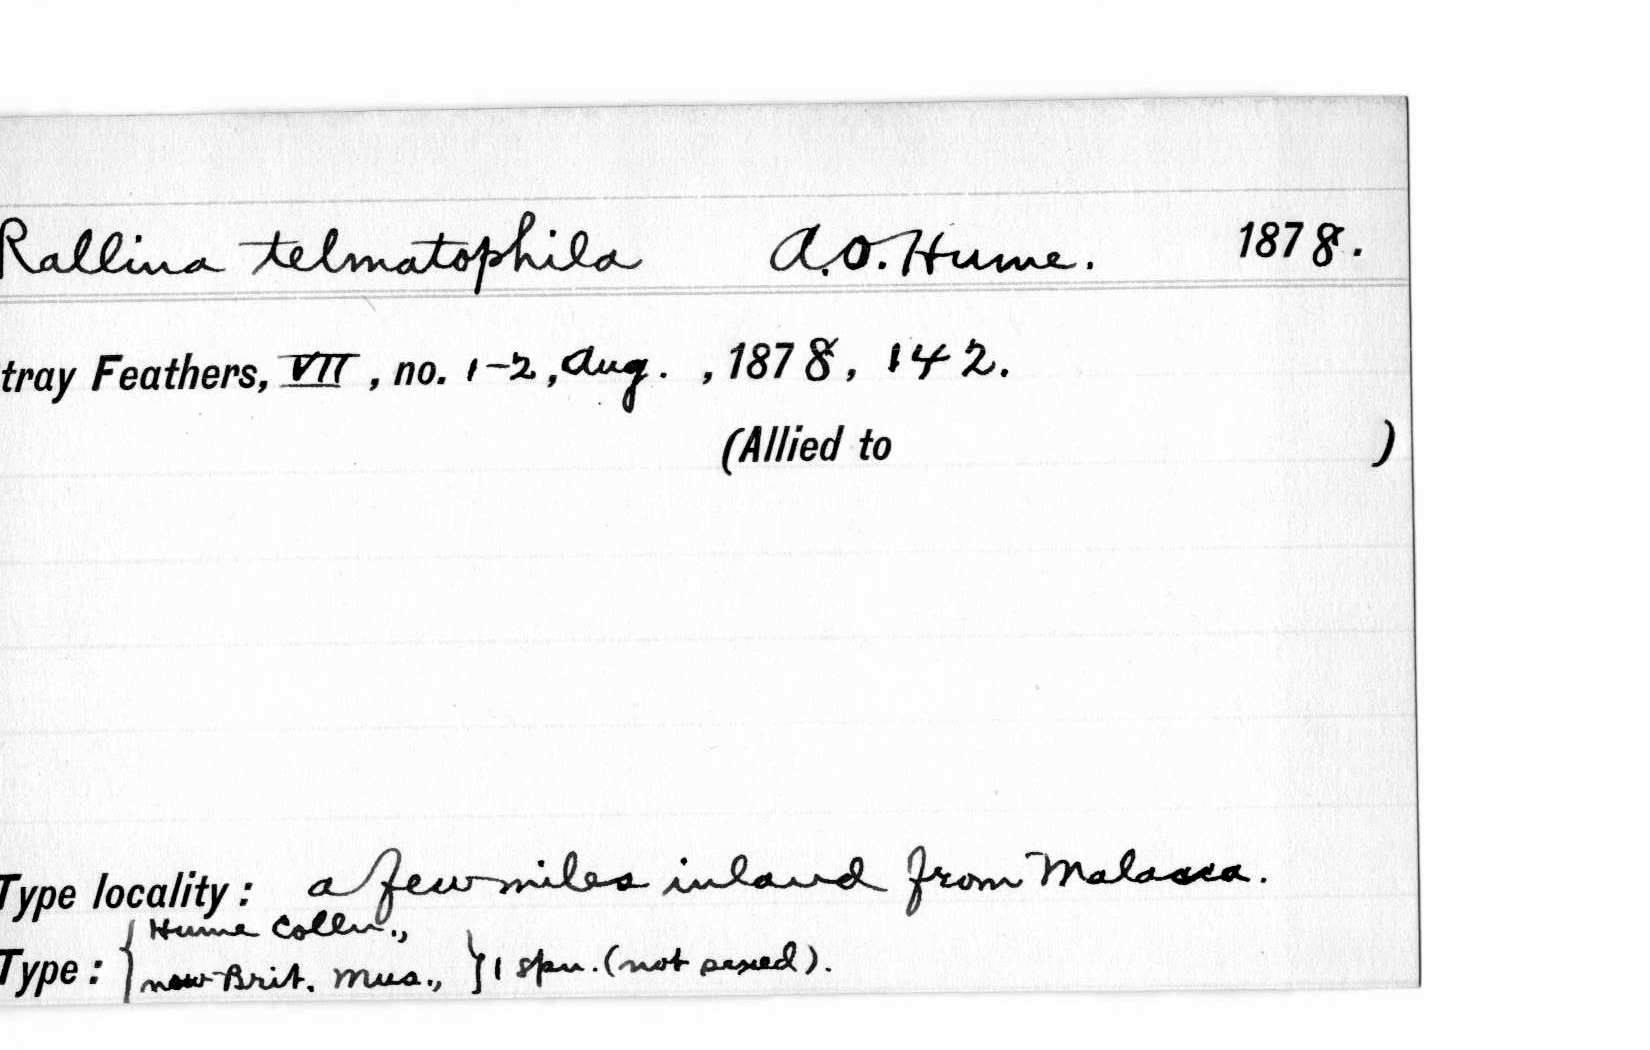 Rallina telmatophila A.O. Hume. 1878.
tray Feathers, VII, no. 1-2, Aug. , 1878, 142.
(Allied to )
Type locality: a few miles inland from Malacca.
Hume Colln.,
Type: { now Brit. Mus., } 1 spn. (not sexed).